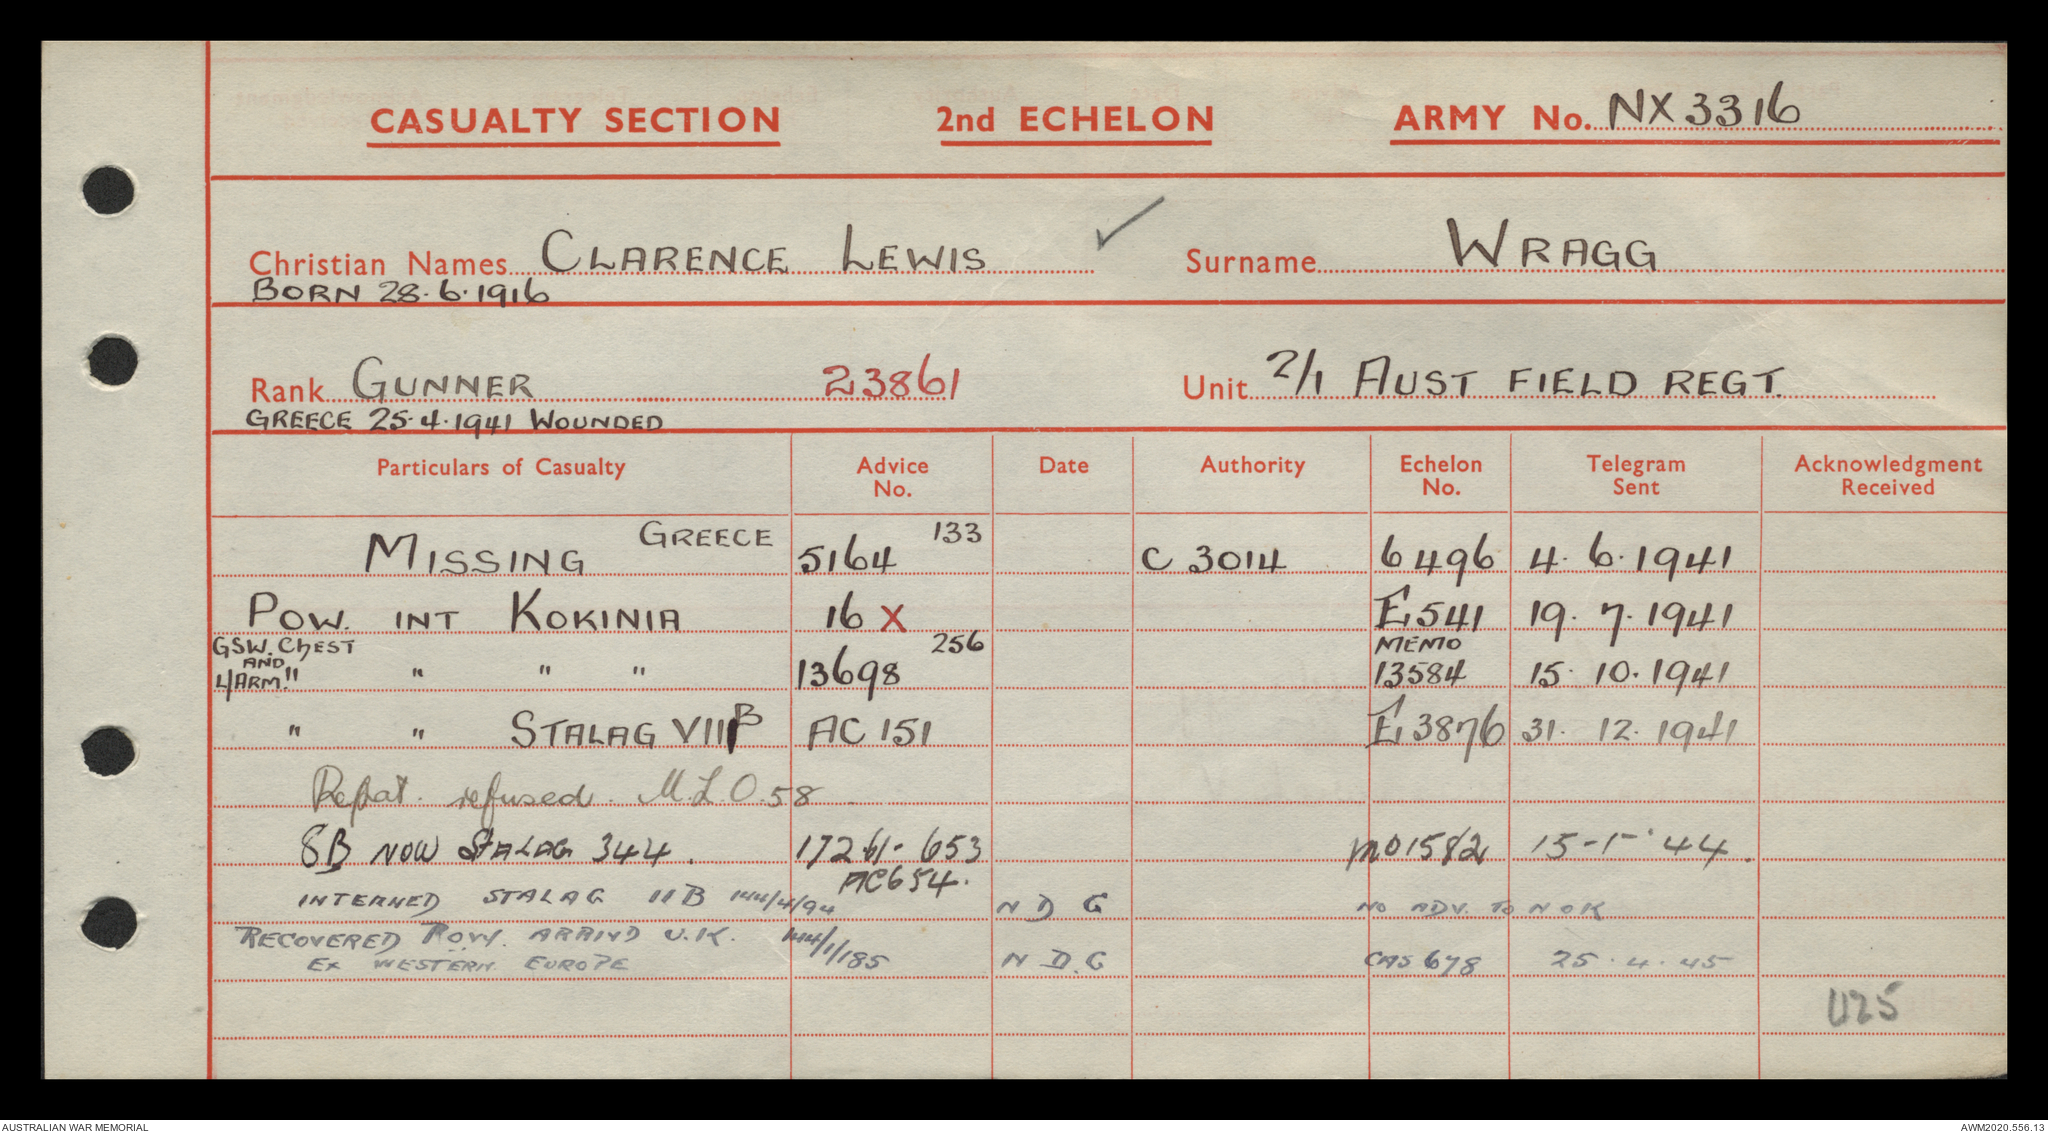 CASUALTY SECTION 2nd ECHELON ARMY No. NX3316
Christian Names CLARENCE LEWIS Surname WRAGG
BORN 28.6.1916
Rank GUNNER 23861 Unit 2/1 AUST FIELD REGT.
GREECE 25.4.1941 WOUNDED
Particulars of Casualty Advice No. Date Authority Echelon No. Telegram Sent Acknowledgment Received
MISSING GREECE 5164 133 C 3014 6496 4.6.1941
POW. INT KOKINIA 16 X E541 19.7.1941
GSW. CHEST AND L/ARM. " " " " 13698 256 MEMO 13584 15.10.1941
" " STALAG VIII B AC 151 E3876 31.12.1941
Repat. refused. M.L.O.58
8B NOW STALAG 344. 17261- 653 MO1582 15-1-44.
AC654.
INTERNED STALAG 11B 144/4/94 N D G NO ADV. TO N O K
RECOVERED POW. ARRIVD U.K. 144/1/185
EX WESTERN EUROPE N D.G CAS 678 25.4.45
U25
AUSTRALIAN WAR MEMORIAL AWM2020.556.13